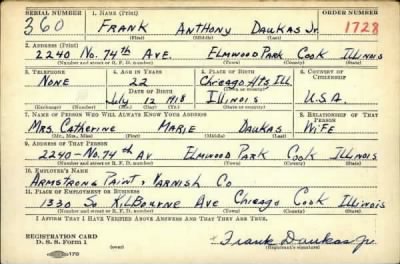 SERIAL NUMBER 1. NAME (Print) ORDER NUMBER
360 FRANK ANTHONY DAUKAS Jr. 1728
(First) (Middle) (Last)
2. ADDRESS (Print)
2240 No. 74th AVE. ELMWOOD PARK COOK ILLINOIS
(Number and street or R. F. D. number) (Town) (County) (State)
3. TELEPHONE 4. AGE IN YEARS 5. PLACE OF BIRTH 6. COUNTRY OF CITIZENSHIP
NONE 22 Chicago Hts Ill
DATE OF BIRTH (Town or county)
July 12 1918 ILLINOIS U.S.A.
(Exchange) (Number) (Mo.) (Day) (Yr.) (State or country)
7. NAME OF PERSON WHO WILL ALWAYS KNOW YOUR ADDRESS 8. RELATIONSHIP OF THAT PERSON
MRS. CATHERINE MARIE DAUKAS WIFE
(Mr., Mrs., Miss) (First) (Middle) (Last)
9. ADDRESS OF THAT PERSON
2240-No. 74th AV ELMWOOD PARK COOK ILLINOIS
(Number and street or R. F. D. number) (Town) (County) (State)
10. EMPLOYER'S NAME
ARMSTRONG PAINT & VARNISH CO
11. PLACE OF EMPLOYMENT OR BUSINESS
1330 So KILBOURNE AVE CHICAGO COOK ILLINOIS
(Number and street or R. F. D. number) (Town) (County) (State)
I AFFIRM THAT I HAVE VERIFIED ABOVE ANSWERS AND THAT THEY ARE TRUE.
REGISTRATION CARD
D. S. S. Form 1 Frank Daukas Jr.
(Registrant's signature)